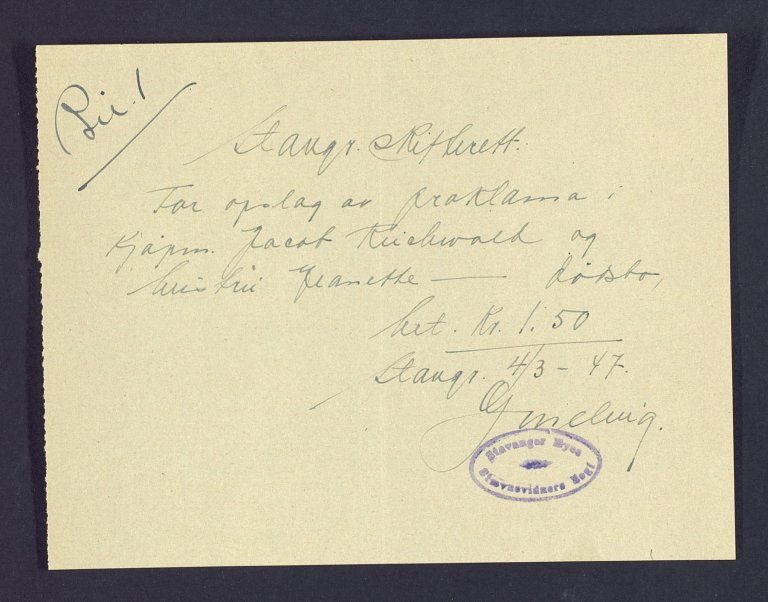 Bil. 1
Stavgr. Skifterett.
For opslag av proklama i
Kjøpm. Jacob Kuchwold og
hustru Jeanette — dødsbo,
bet. Kr. 1.50
Stavgr. 4/3 - 47.
Stavanger Byes
Stævnevidners Kont